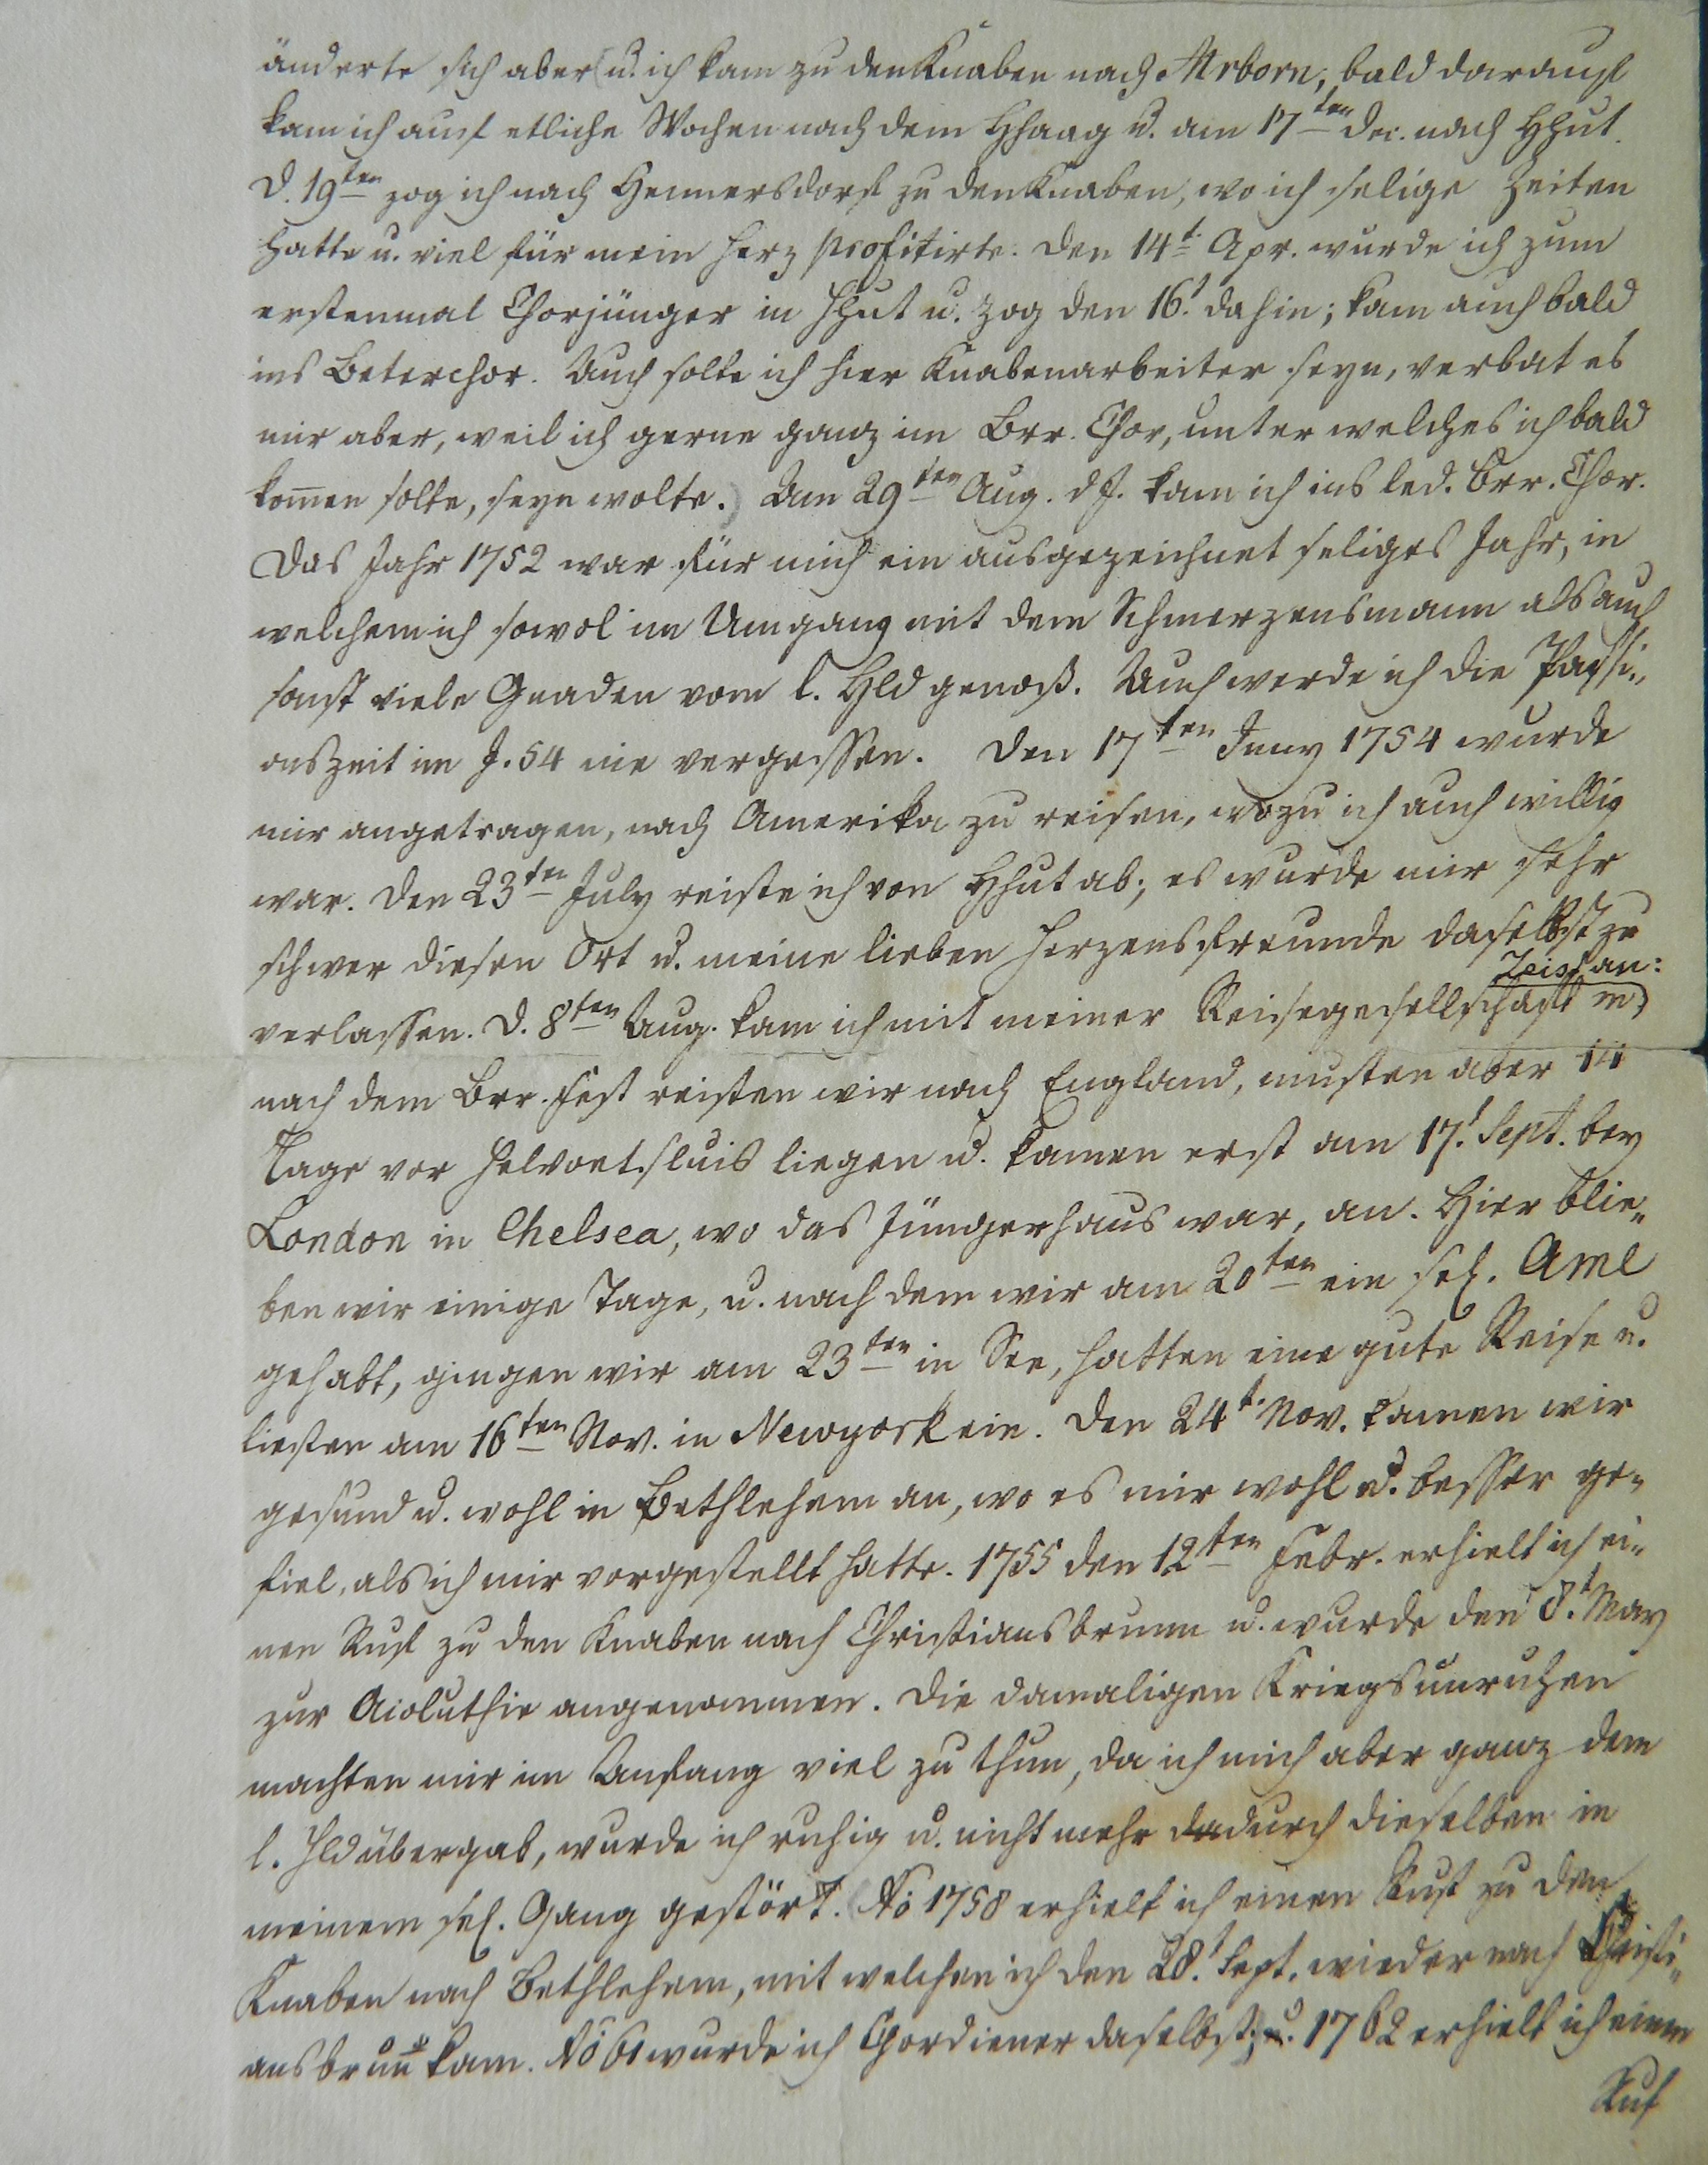 änderte sich aber (u. ich kam zu den Knaben nach Arborn; bald darauf
kam ich auf etliche Wochen nach dem Hhaag u. am 17ten Dec. nach Hhut.
D. 19ten zog ich nach Hennersdorf zu den Knaben, wo ich selige Zeiten
hatte u. viel für mein Herz profitirte. Den 14t. Apr. wurde ich zum
erstenmal Chorjünger in Hhut u. zog den 16t. dahin; kam auch bald
ins Beterchor. Auch solte ich hier Knabenarbeiter seyn, verbat es
mir aber, weil ich gerne ganz im Brr. Chor, unter welches ich bald
kom̄en solte, seyn wolte.) Am 29ten Aug. d. J. kam ich ins led. Brr. Chor.
Das Jahr 1752 war für mich ein ausgezeichnet seliges Jahr, in
welchem ich sowol im Umgang mit dem Schmerzensmann als auch
sonst viele Gnaden vom l. Hld genoß. Auch werde ich die Passi„
onszeit im J. 54 nie vergessen. Den 17ten Juny 1754 wurde
mir angetragen, nach Amerika zu reisen, wozu ich auch willig
war. Den 23ten July reiste ich von Hhut ab; es wurde mir sehr
schwer diesen Ort u. meine lieben Herzensfreunde daselbst zu
verlassen. D. 8ten Aug. kam ich mit meiner Reisegesellschaft in
Zeist an:
nach dem Brr. Fest reisten wir nach England, musten aber 14
Tage vor Helvoetsluis liegen u. kamen erst am 17t. Sept. bey
London in Chelsea, wo das Jüngerhaus war, an. Hier blie„
ben wir einige Tage, u. nach dem wir am 20ten ein sel. Aml
gehabt, gingen wir am 23ten in See, hatten eine gute Reise u.
liefen am 16ten Nov. in Newyork ein. Den 24t. Nov. kamen wir
gesund u. wohl in Bethlehem an, wo es mir wohl u. besser ge„
fiel, als ich mir vorgestellt hatte. 1755 den 12ten Febr. erhielt ich ei„
nen Ruf zu den Knaben nach Christiansbrunn u. wurde den 8t. May
zur Acoluthie angenommen. Die damaligen Kriegsunruhen
machten mir im Anfang viel zu thun, da ich mich aber ganz dem
l. Hld übergab, wurde ich ruhig u. nicht mehr dadurch dieselben in
meinem sel. Gang gestört. (Ao 1758 erhielt ich einen Ruf zu den
Knaben nach Bethlehem, mit welchen ich den 28t. Sept. wieder nach Christi„
ansbrun̄ kam. Ao 61 wurde ich Chordiener daselbst; u. 1762 erhielt ich einen
Ruf